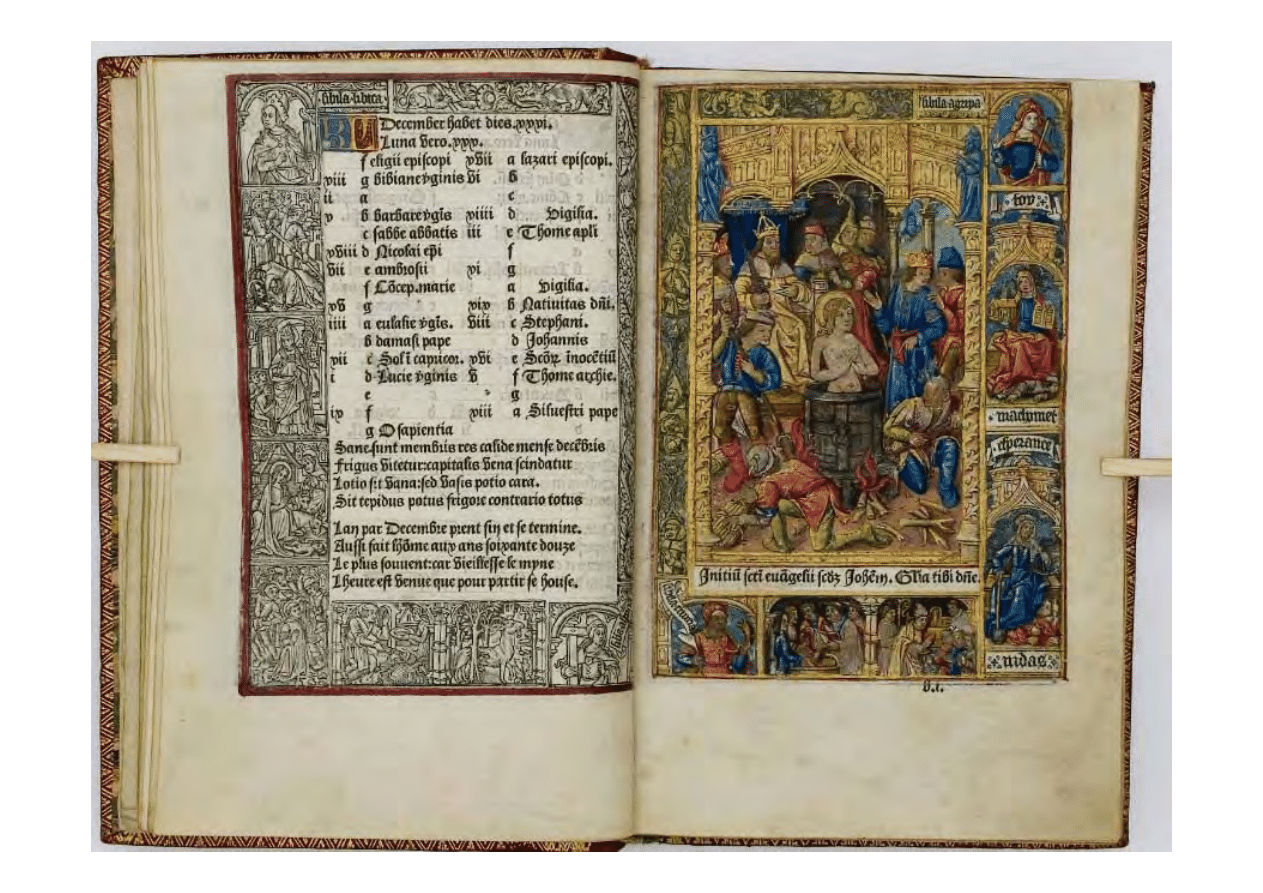 sibila libica
KL December habet dies.xxxi.
Luna vero.xxx.
f eligii episcopi xvii a lazari episcopi.
viii g bibiane v̄ginis vi b
ii a c
x b barbare v̄gīs xiiii d Vigilia.
c sabbe abbatis iii e Thome apl̄i
xviii d Nicolai ep̄i f
vii e ambrosii xi g
f Cōcep.marie a Vigilia.
xv g xix b Natiuitas dn̄i.
iiii a eulalie v̄gīs. viii c Stephani.
b damasi pape d Johannis
xii c Sol ī capricor. xvi e Scōꝝ inocētiū
i d Lucie v̄ginis v f Thome archie.
e g
ix f xiii a Siluestri pape
g O sapientia
Sane sunt membris res calide mense decēbris
Frigus vitetur:capitalis vena scindatur
Lotio sit vana:sed vasis potio cara.
Sit tepidus potus frigore contrario totus
Lan par Decembre prent fin et se termine.
Aussi fait lhōme aux ans soixante douze
Le plus souuent:car vieillesse le myne
Lheure est venue que pour partir se house.
sibila agripa
foy
machymet
esperance
Initiū sct̄i euāgelii scd̄ꝫ Johēm. Gl̄ia tibi dn̄e.
iudas
b.i.